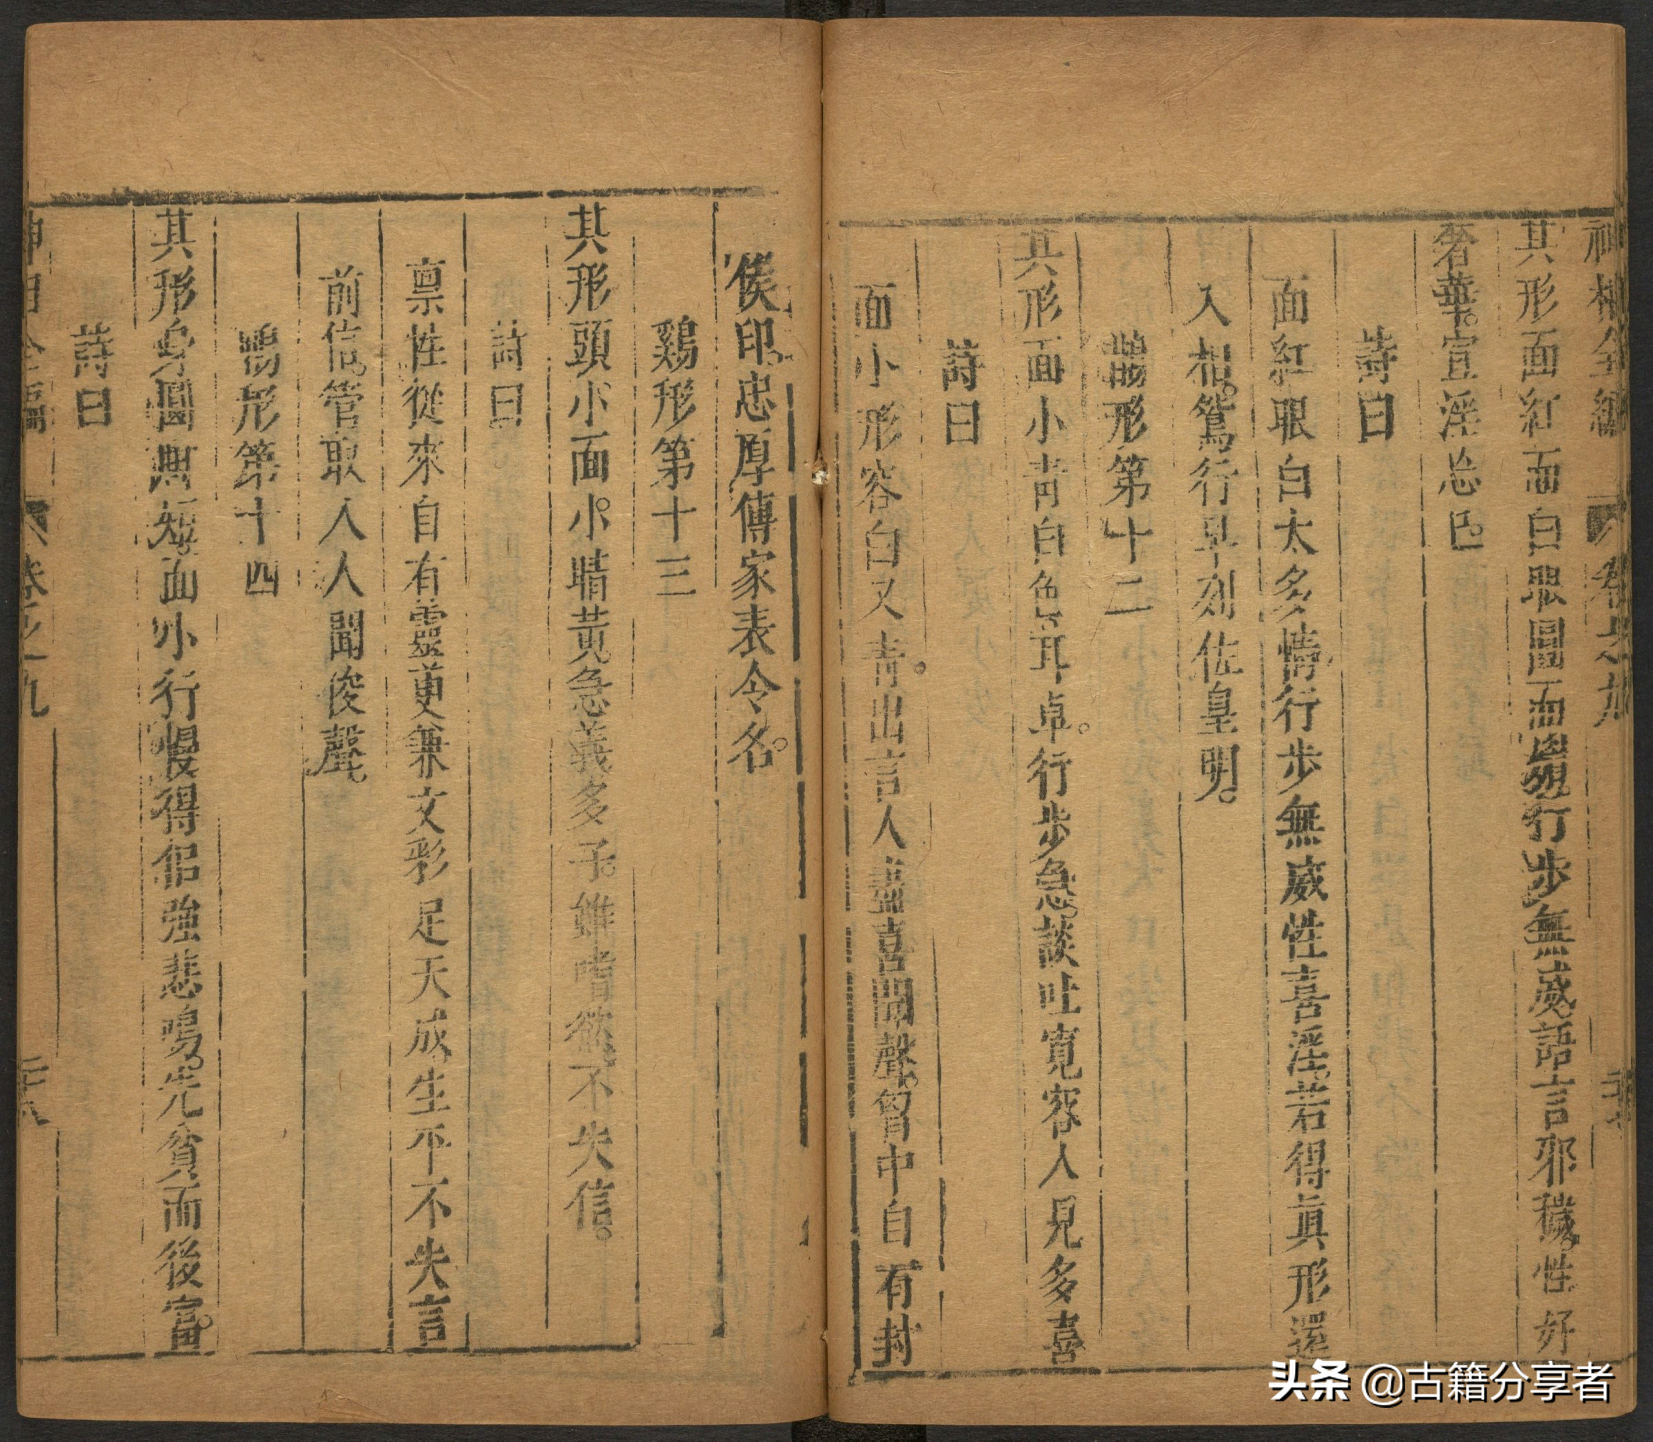 神相全編 卷之九
其形面紅而白眼圓而行步無威語言邪穢性好
奢華宣淫恣色
詩曰
面紅眼白太多情行步無威性喜淫若得眞形還
入相鴛行早列佐皇明
鷴形第十二
其形面小青白色耳卓行步急談吐寬容人見多喜
詩曰
面小形容白又青出言人盡喜聞聲智中自有封
侯印忠厚傳家表令名
鷄形第十三
其形頭小面小小睛黃急義多子雖嗜慾不失信
詩曰
禀性從來自有靈更兼文彩足天成生平不失言
前信管取人人聞俊聲
形第十四
其形身圓短面小行慢得侶強悲鳴先貧而後富
詩曰
神相全編 卷之九 二十八
头条 @古籍分享者